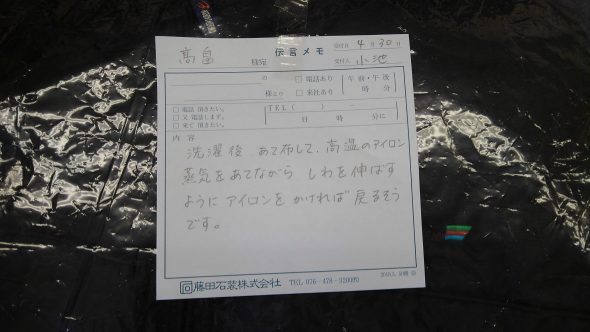 高畠 様宛
伝言メモ
受付日 4月30日
受付人 小池
の
様より
□ 電話あり
□ 来社あり
午前・午後
時 分
□ 電話頂きたい。
□ 又電話します。
□ 来て頂きたい。
TEL ( ) －
日 時 分に
内容
洗濯後 あて布して、高温のアイロン
蒸気をあてながら しわを伸ばす
ように アイロンを かければ 戻るそう
です。
藤田石装株式会社 TEL 076-478-3200㈹